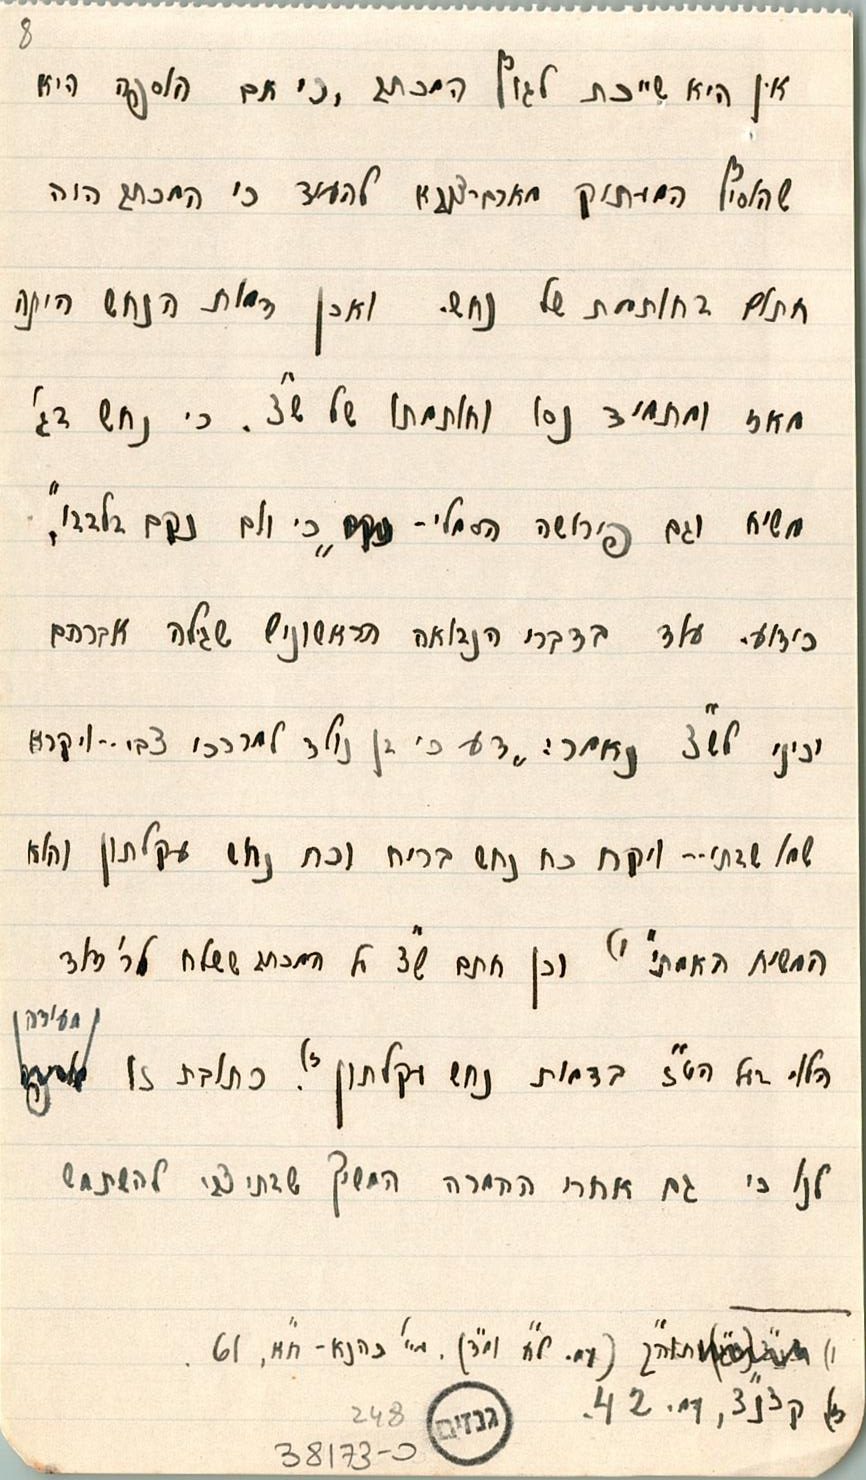 8
אין היא שייכת לגוף המכתב, כי אם הוספה היא
שהוסיף המעתיק מארם-צובא להעיד כי המכתב הוה
חתום בחותמת של נחש. ואכן דמות הנחש היתה
מאז ומתמיד נסו וחותמתו של ש"צ. כי נחש בג'
משיח וגם פירושה הסמלי- "כי ולם נקם בלבבו",
כידוע. עוד בדברי הנבואה הראשונים שגילה אברהם
יכיני לש"צ נאמר: "דע כי בן נולד למרדכי צבי... ויקרא
שמו שבתי... ויקח כח נחש בריח וכח נחש עקלתון והוא
המשיח האמתי" 1) וכן חתם ש"צ על המכתב ששלח לר' דוד
הלוי בעל הט"ז בדמות נחש עקלתון 2). כתובת זו מעידה
לנו כי גם אחרי ההמרה המשיך שבתי צבי להשתמש
1) (עמ. ל"ח ומ"ד). מ"י כהנא- ח"א, 61.
2) קצנ"צ, עמ. 42.
גנזים
248
38173-כ